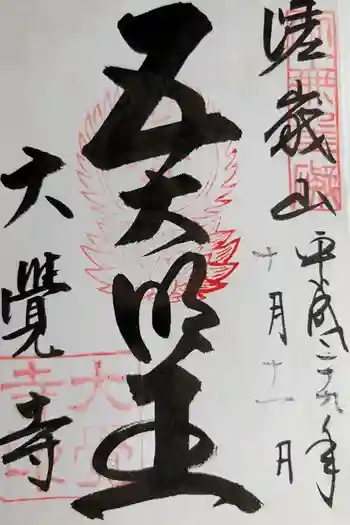 嵯峨山
平成二十六年
十月十一日
五大明王
大覺寺